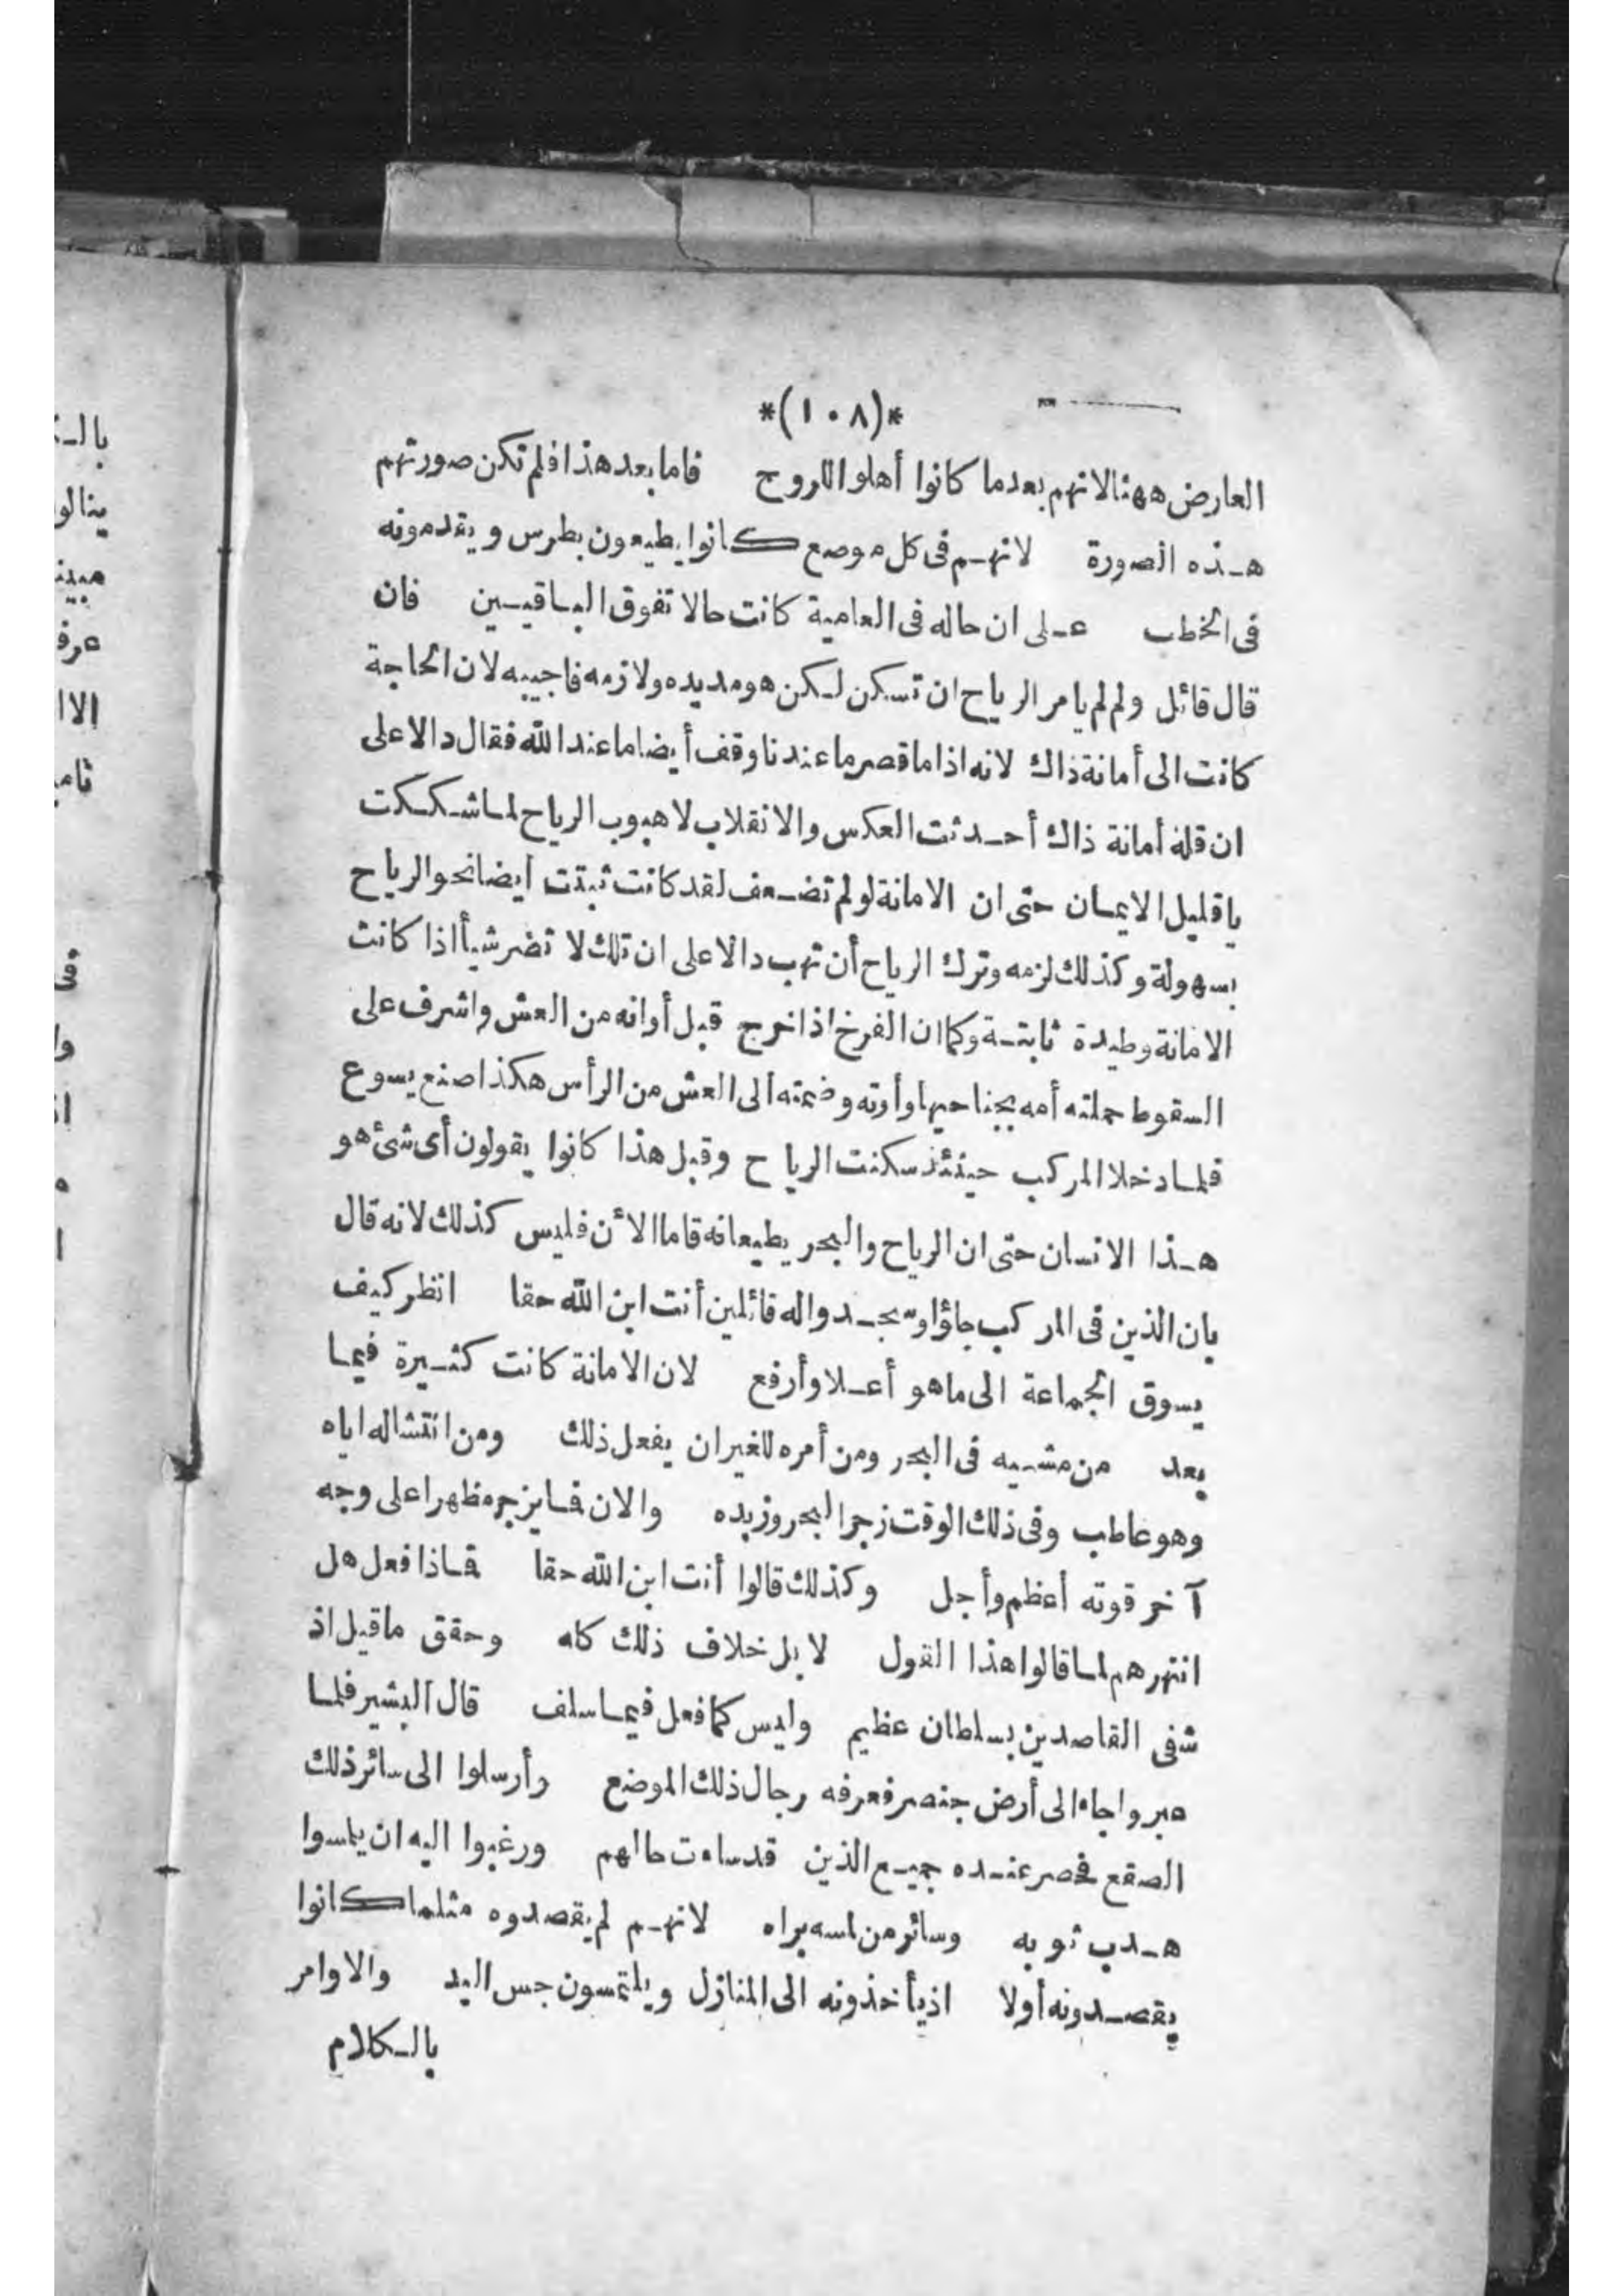 *(١٠٨)*
العارض ههنا لانهم بعدما كانوا أهلوا للروح فاما بعد هذا فلم تكن صورتهم
هذه الصورة لانهم فى كل موضع كانوا يطيعون بطرس ويقدمونه
فى الخطب على ان حاله فى العامية كانت حالا تفوق الباقيين فان
قال قائل ولم لم يامر الرياح ان تسكن لكن هو مد يده ولازمه فاجيبه لان الحاجة
كانت الى أمانة ذاك لانه اذا ما قصر ما عندنا وقف أيضا ما عند الله فقال دالا على
ان قلة أمانة ذاك أحدثت العكس والانقلاب لا هبوب الرياح لما شككت
يا قليل الايمان حتى ان الامانة لو لم تضعف لقد كانت ثبتت أيضا نحو الرياح
بسهولة وكذلك لزمه وترك الرياح أن تهب دالا على ان تلك لا تضر شيأ اذا كانت
الامانة وطيدة ثابتة وكما ان الفرخ اذا خرج قبل أوانه من العش واشرف على
السقوط حملته أمه بجناحيها وأوته وضمته الى العش من الرأس هكذا صنع يسوع
فلما دخلا المركب حينئذ سكنت الرياح وقبل هذا كانوا يقولون أى شئ هو
هذا الانسان حتى ان الرياح والبحر يطيعانه فاما الآن فليس كذلك لانه قال
بان الذين فى المركب جاؤا وسجدوا له قائلين أنت ابن الله حقا انظر كيف
يسوق الجماعة الى ما هو أعلا وأرفع لان الامانة كانت كثيرة فيما
بعد من مشيه فى البحر ومن أمره للغير ان يفعل ذلك ومن انتشاله اياه
وهو عاطب وفى ذلك الوقت زجر البحر وزبده والان فما يزجر مظهرا على وجه
آخر قوته أعظم وأجل وكذلك قالوا أنت ابن الله حقا فماذا فعل هل
انتهرهم لما قالوا هذا القول لا بل خلاف ذلك كله وحقق ما قيل اذ
شفى القاصدين بسلطان عظيم وليس كما فعل فيما سلف قال البشير فلما
عبروا جاء الى أرض جنصر فعرفه رجال ذلك الموضع وأرسلوا الى سائر ذلك
الصقع فحضر عنده جميع الذين قد ساءت حالهم ورغبوا اليه ان يلمسوا
هدب ثوبه وسائر من لمسه براه لانهم لم يقصدوه مثلما كانوا
يقصدونه أولا اذ يأخذونه الى المنازل ويلتمسون جس اليد والاوامر
بالكلام